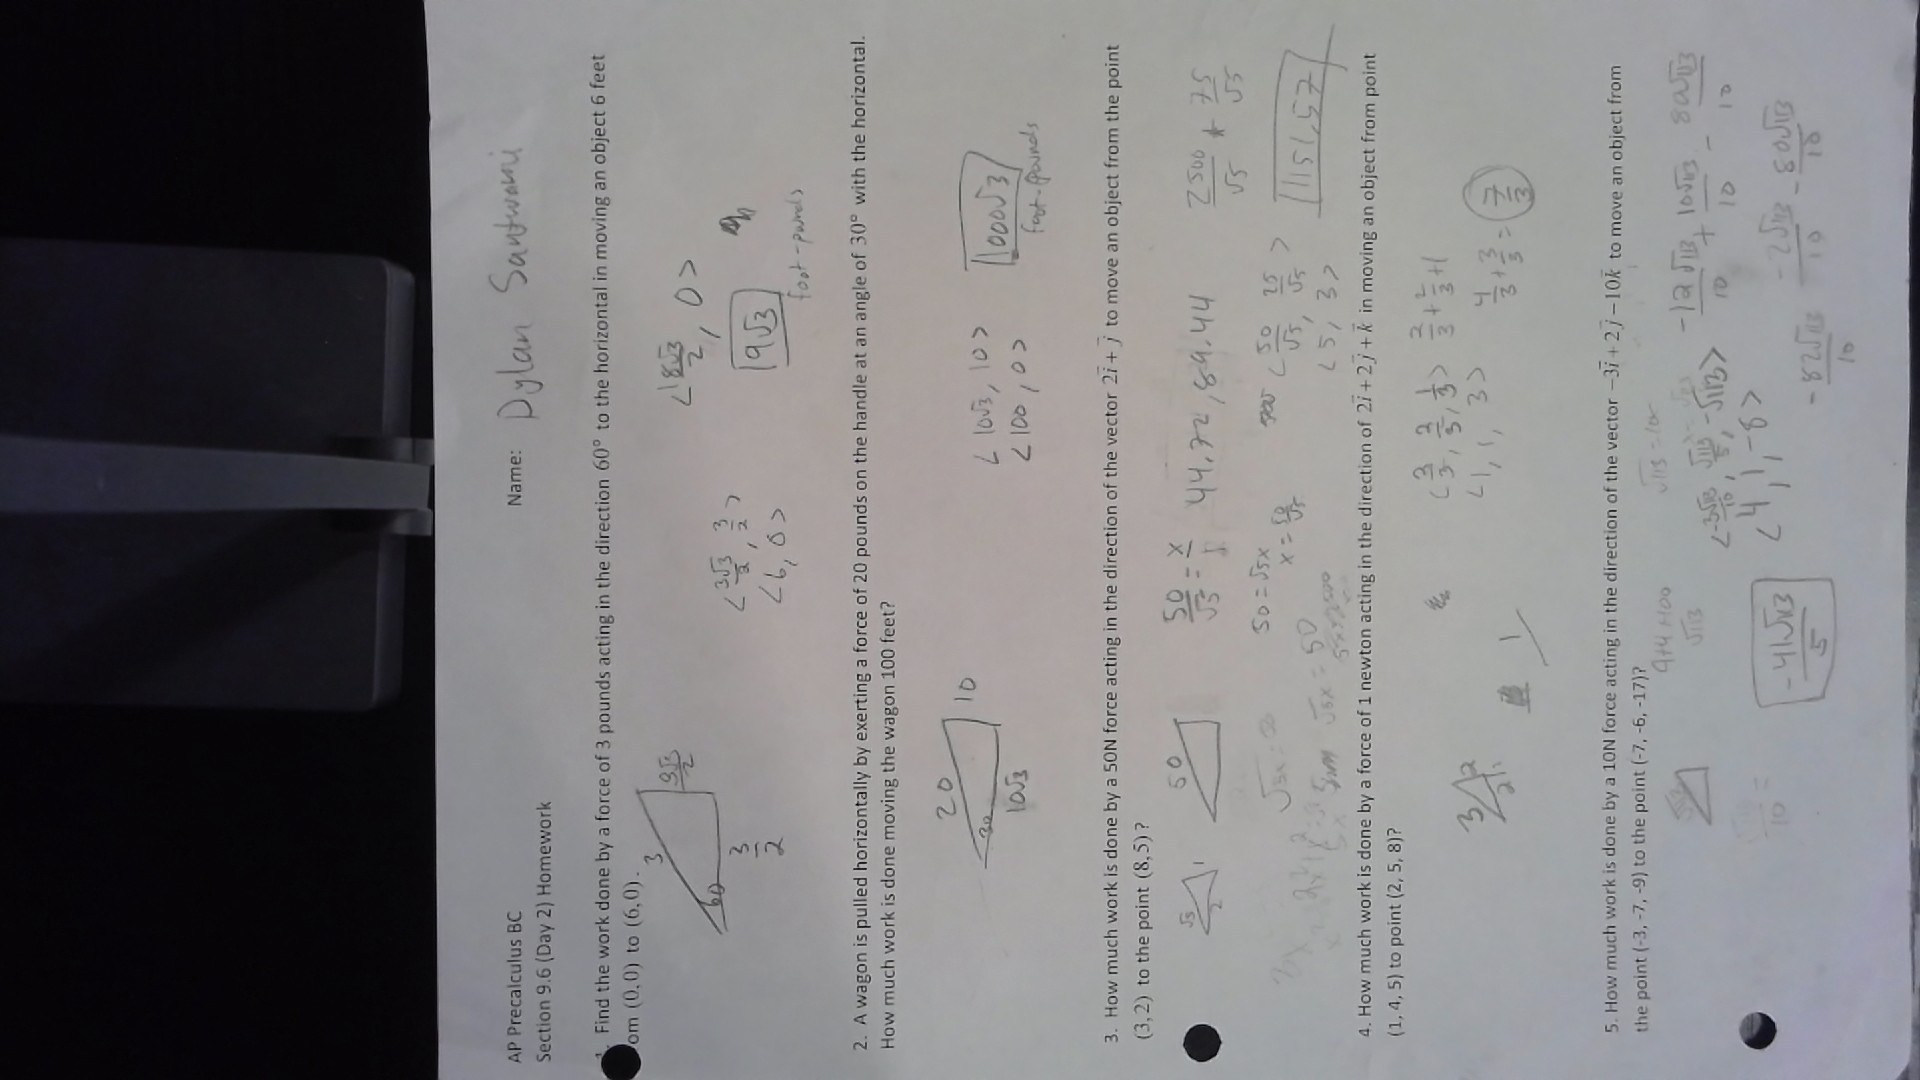 AP Precalculus BC
Name: Dylan
Section 9.6 (Day 2) Homework
Find the work done by a force of 3 pounds acting in the direction 60° to the horizontal in moving an object 6 feet
om (0,0) to (6,0).
3
60
3/2
3√3/2
<3√3/2, 3/2>
<6, 0>
<18√3/2, 0>
9√3
foot-pounds
2. A wagon is pulled horizontally by exerting a force of 20 pounds on the handle at an angle of 30° with the horizontal.
How much work is done moving the wagon 100 feet?
20
30
10
10√3
<10√3, 10>
<100, 0>
1000√3
foot-pounds
3. How much work is done by a 50N force acting in the direction of the vector 2i⃗ + j⃗ to move an object from the point
(3,2) to the point (8,5)?
√5
2
1
50
50/√5 = x/
44.72, 89.44
50 = √5x
x = 50/√5
√5x = 50
<50/√5, 25/√5>
<5, 3>
2500/√5 + 75/√5
1151.57
4. How much work is done by a force of 1 newton acting in the direction of 2i⃗ + 2j⃗ + k⃗ in moving an object from point
(1, 4, 5) to point (2, 5, 8)?
3
2
2
1
1
<2/3, 2/3, 1/3>
<1, 1, 3>
2/3 + 2/3 + 1
4/3 + 3/3 = 7/3
5. How much work is done by a 10N force acting in the direction of the vector −3i⃗ + 2j⃗ − 10k⃗ to move an object from
the point (-3, -7, -9) to the point (-7, -6, -17)?
9+4+100
√113
√113 = 10x
<-3√113/10, √113/5, -√113>
<4, 1, -8>
-12√113/10 + 10√113/10 - 80√113/10
-2√113/10 - 80√113/10
-82√113/10
-41√113/5